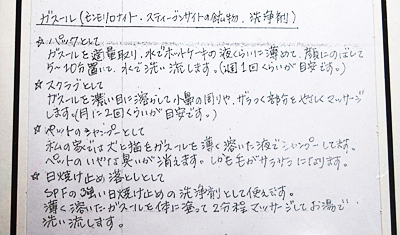 ガスール(モンモリロナイト・スティーブンサイトの鉱物・洗浄剤)
☆ パックとして
ガスールを適量取り、水でホットケーキの液くらいに薄めて、顔にのばして
5〜10分置いて、水で洗い流します。(週1回くらいが目安です。)
☆ スクラブとして
ガスールを濃い目に溶かして小鼻の周りや、ざらつく部分をやさしくマッサージ
します。(月に2回くらいが目安です。)
☆ ペットのシャンプーとして
ボムの家では犬と猫をガスールを薄く溶いた液でシャンプーしてます。
ペットのいやな臭いが消えます。しかも毛がサラサラになります。
☆ 日焼け止め落としとして
SPFの強い日焼け止めの洗浄剤として使えます。
薄く溶いたガスールを体に塗って2分程マッサージしてお湯で
洗い流します。